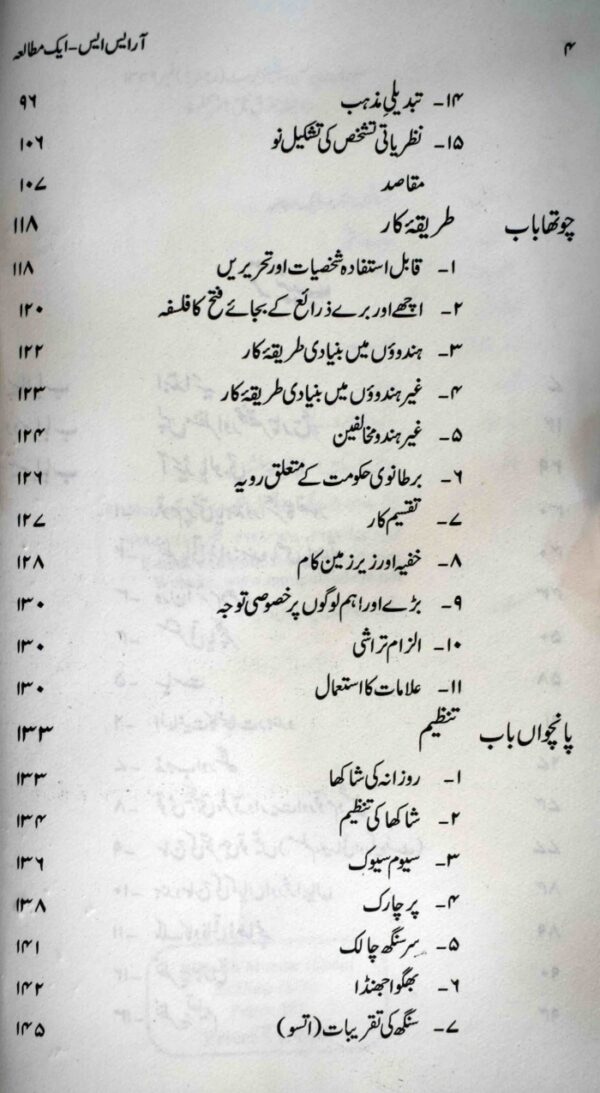 ۴ آر ایس ایس - ایک مطالعہ
۱۴- تبدیلیِ مذہب ۹۶
۱۵- نظریاتی تشخص کی تشکیل نو ۱۰۶
مقاصد ۱۰۷
چوتھا باب طریقۂ کار ۱۱۸
۱- قابل استفادہ شخصیات اور تحریریں ۱۱۸
۲- اچھے اور برے ذرائع کے بجائے فتح کا فلسفہ ۱۲۰
۳- ہندوؤں میں بنیادی طریقۂ کار ۱۲۲
۴- غیر ہندوؤں میں بنیادی طریقۂ کار ۱۲۳
۵- غیر ہندو مخالفین ۱۲۴
۶- برطانوی حکومت کے متعلق رویہ ۱۲۶
۷- تقسیم کار ۱۲۷
۸- خفیہ اور زیر زمین کام ۱۲۸
۹- بڑے اور اہم لوگوں پر خصوصی توجہ ۱۳۰
۱۰- الزام تراشی ۱۳۰
۱۱- علامات کا استعمال ۱۳۰
پانچواں باب تنظیم ۱۳۳
۱- روزانہ کی شاکھا ۱۳۳
۲- شاکھا کی تنظیم ۱۳۴
۳- سیوم سیوک ۱۳۶
۴- پرچارک ۱۳۸
۵- سر سنگھ چالک ۱۴۱
۶- بھگوا جھنڈا ۱۴۲
۷- سنگھ کی تقریبات (اتسو) ۱۴۵